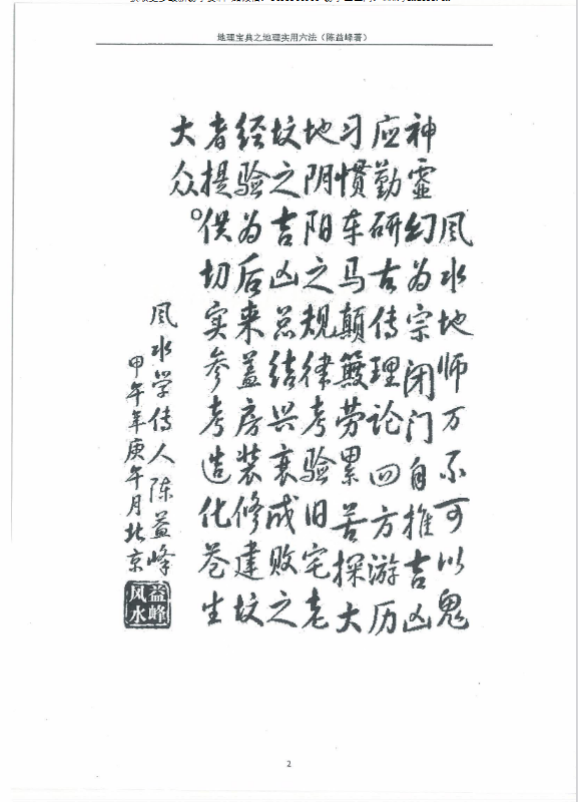 地理宝典之地理实用六法（陈益峰著）
风水地师万不可以鬼
神霊幻为宗闭门自推吉凶
应勤研古传理论四方游历
习惯车马颠簸劳累苦探大
地阴阳之规律考验旧宅老
坟之吉凶总结兴衰成败之
经验为后来盖房装修建坟
者提供切实参考造化苍生
大众。
风水学传人陈益峰
甲午年庚午月北京
益峰
风水
2